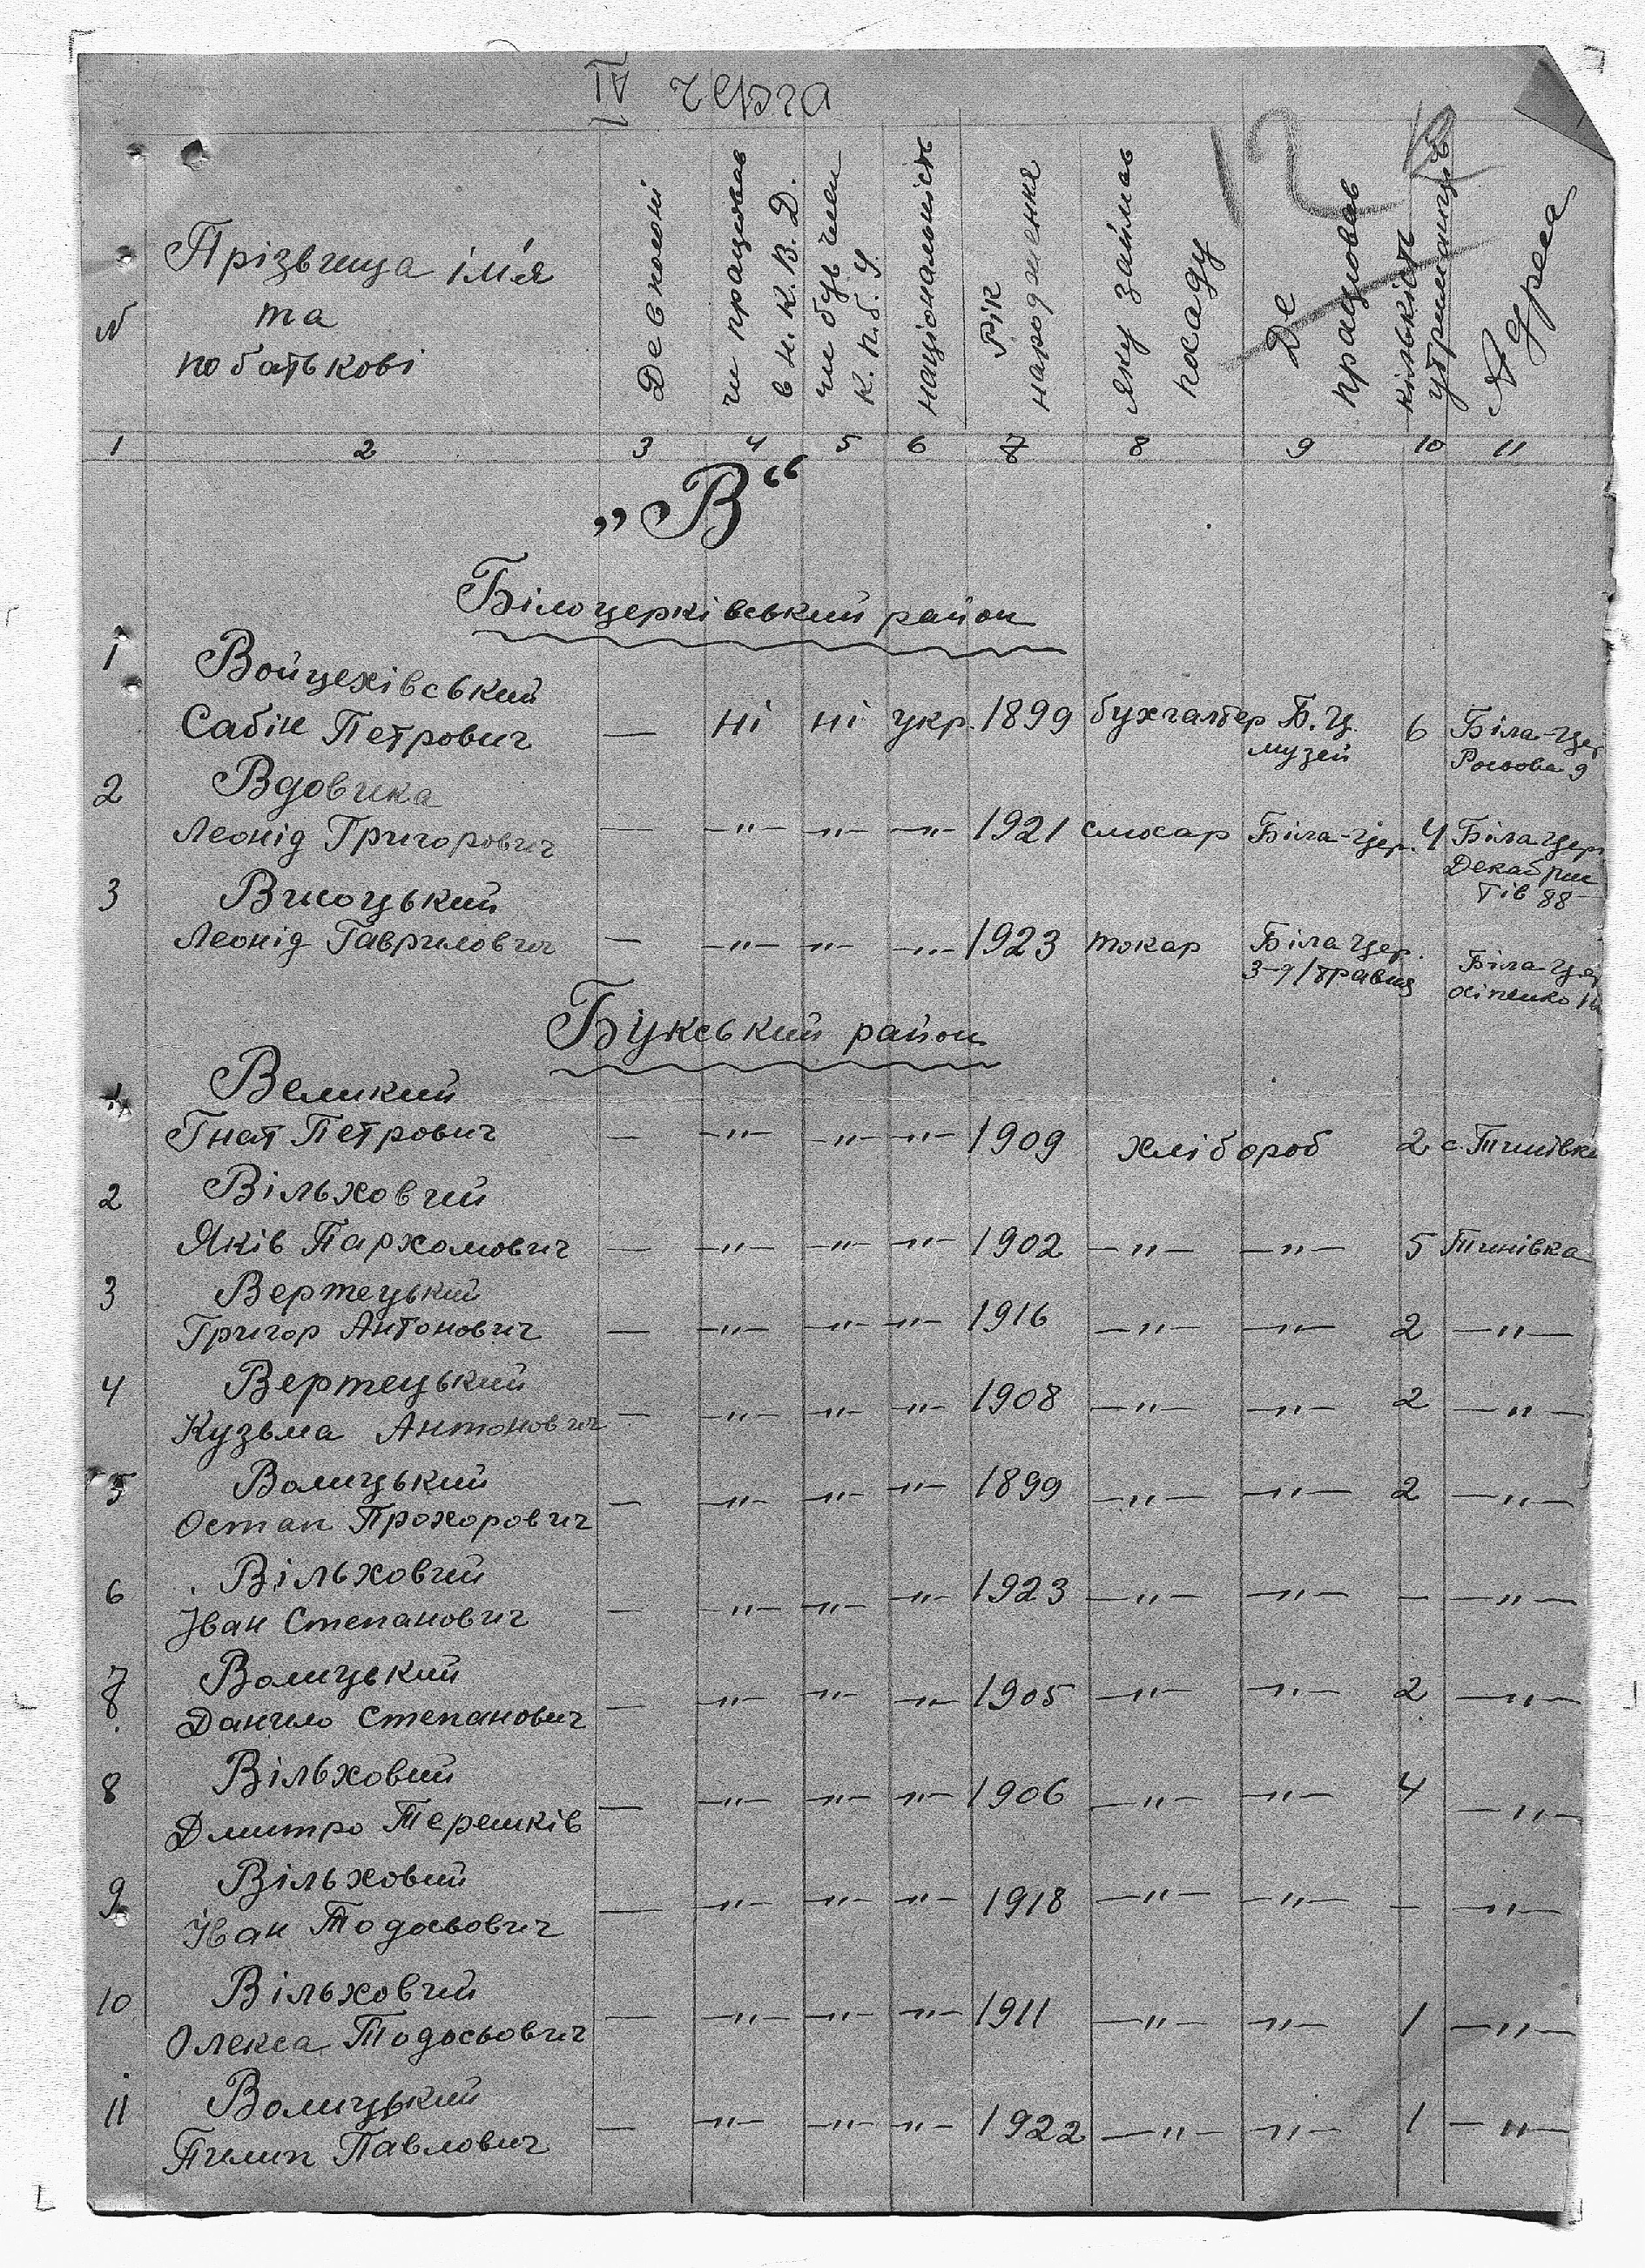 IV черга
12
№
Прізвища ім'я
та
по батькові
Де в полоні
чи працював
в Н. К. В. Д.
чи був член
К. п. б. У.
національність
Рік
народження
яку займав
посаду
Де
працював
кількість
утриманців
Адреса
1 2 3 4 5 6 7 8 9 10 11
„В“
Білоцерківський район
1 Войцехівський
Сабін Петрович — ні ні укр. 1899 бухгалтер Б. Ц. 6 Біла-Цер
музей 9
2 Вдовика
Леонід Григорович — —"— —"— —"— 1921 слюсар Біла-Цер. 4 Біла Цер
Декабрис
тів 88
3 Висоцький
Леонід Гаврилович — —"— —"— —"— 1923 токар Біла Цер. Біла-Цер
3-д 1 травня
Букський район
1 Великий
Гнат Петрович — —"— —"— —"— 1909 хлібороб 2 с. Тинівка
2 Вільховий
Яків Пархомович — —"— —"— —"— 1902 —"— —"— 5 Тинівка
3 Вертецький
Григор Антонович — —"— —"— —"— 1916 —"— —"— 2 —"—
4 Вертецький
Кузьма Антонович — —"— —"— —"— 1908 —"— —"— 2 —"—
5 Волицький
Остап Прохорович — —"— —"— —"— 1899 —"— —"— 2 —"—
6 Вільховий
Іван Степанович — —"— —"— —"— 1923 —"— —"— — —"—
7 Волицький
Данило Степанович — —"— —"— —"— 1905 —"— —"— 2 —"—
8 Вільховий
Дмитро Терешків — —"— —"— —"— 1906 —"— —"— 4 —"—
9 Вільховий
Іван Тодосьович — —"— —"— —"— 1918 —"— —"— — —"—
10 Вільховий
Олекса Тодосьович — —"— —"— —"— 1911 —"— —"— 1 —"—
11 Волицький
Пилип Павлович — —"— —"— —"— 1922 —"— —"— 1 —"—